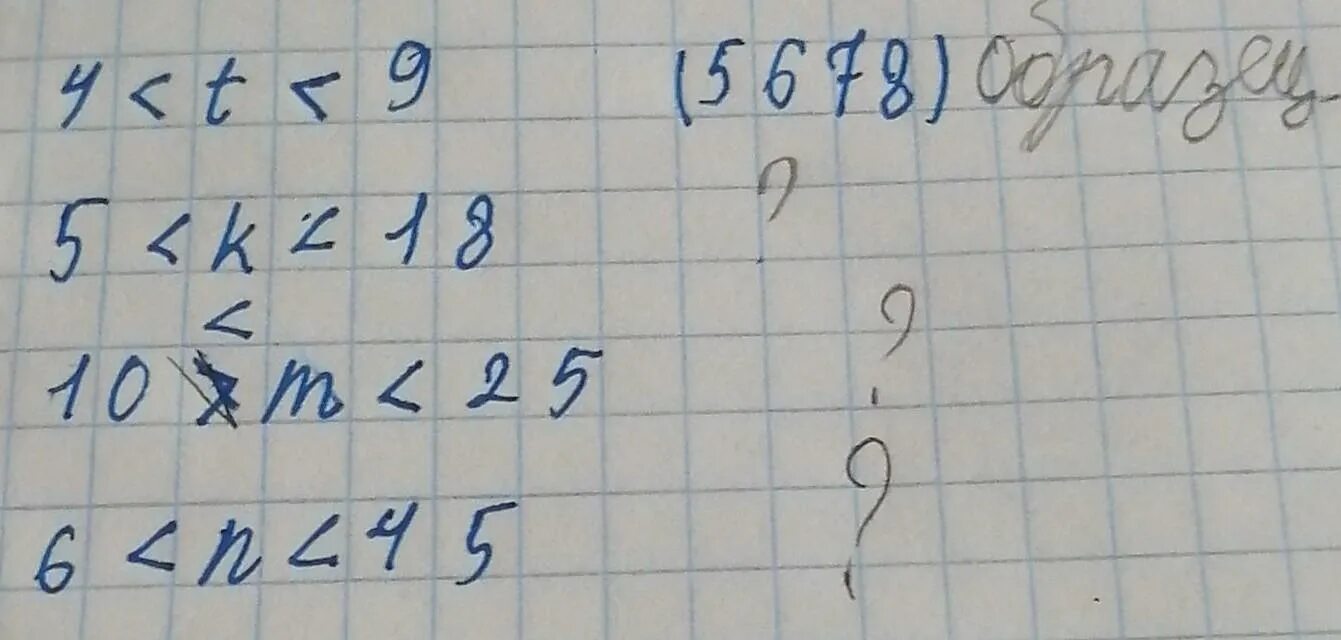 4 < t < 9 (5 6 7 8) Образец
5 < k < 18 ?
<
10 m < 25 ?
6 < n < 45 ?